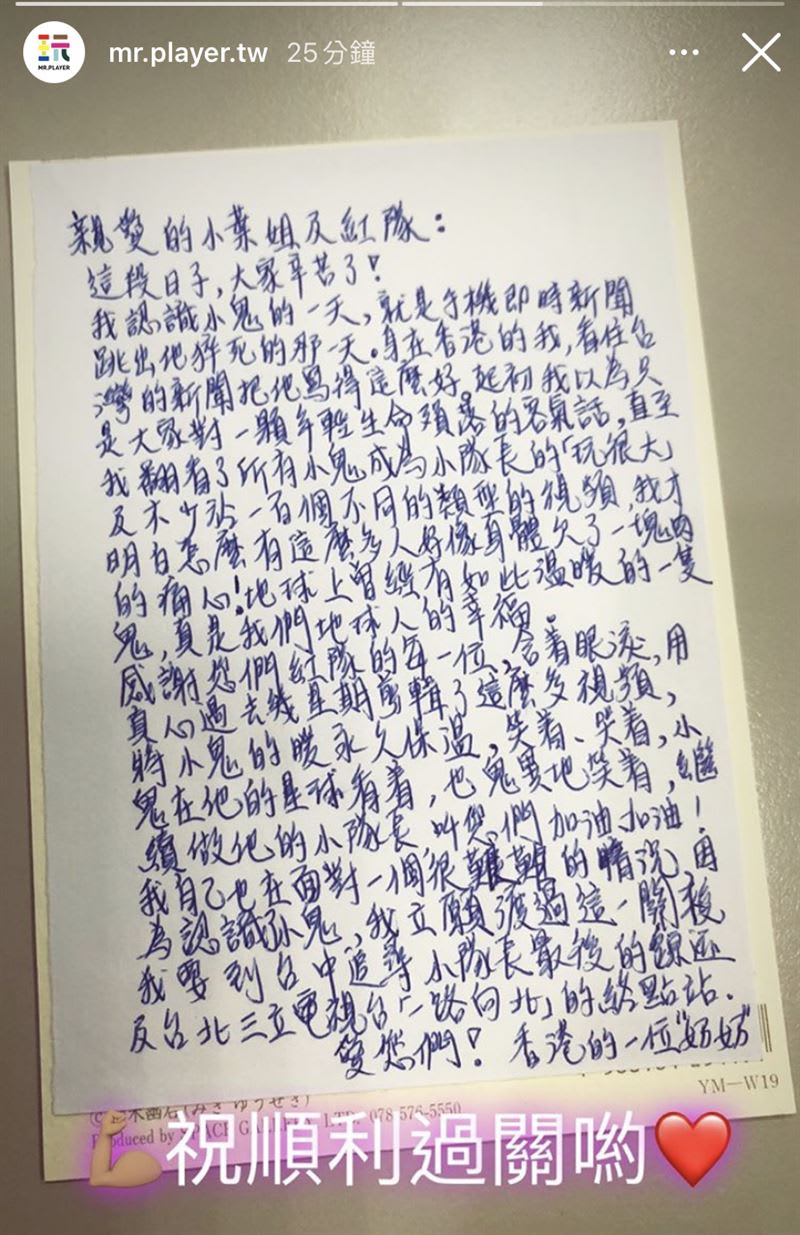 mr.player.tw 25分鐘
MR.PLAYER
親愛的小葉姐及紅隊：
這段日子，大家辛苦了！
我認識小鬼的一天，就是手機即時新聞
跳出他猝死的那一天。身在香港的我，看住台
灣的新聞把他寫得這麼好，起初我以為只
是大家對一顆年輕生命殞落的客氣話，直至
我翻看了所有小鬼成為小隊長的「玩很大」
及不少沾一百個不同的類型的視頻，我才
明白怎麼有這麼多人好像身體欠了一塊肉
的痛心！地球上曾經有如此溫暖的一隻
鬼，真是我們地球人的幸福。
感謝您們紅隊的每一位，含着眼淚，用
真心過去幾星期剪輯了這麼多視頻，
將小鬼的暖永久保溫，笑着、哭着，小
鬼在他的星球看着，也鬼異地笑着，繼
續做他的小隊長，叫您們加油加油！
我自己也在面對一個很艱難的情況，因
為認識小鬼，我立願渡過這一關後
我要到台中追尋小隊長最後的蹤跡
及台北三立電視台「一路向北」的終點站。
愛您們！ 香港的一位"奶奶"
YM—W19
木函石(みき ゆうせき)
Produced by SPACE GALLERIA LTD. 078-576-5550
祝順利過關喲